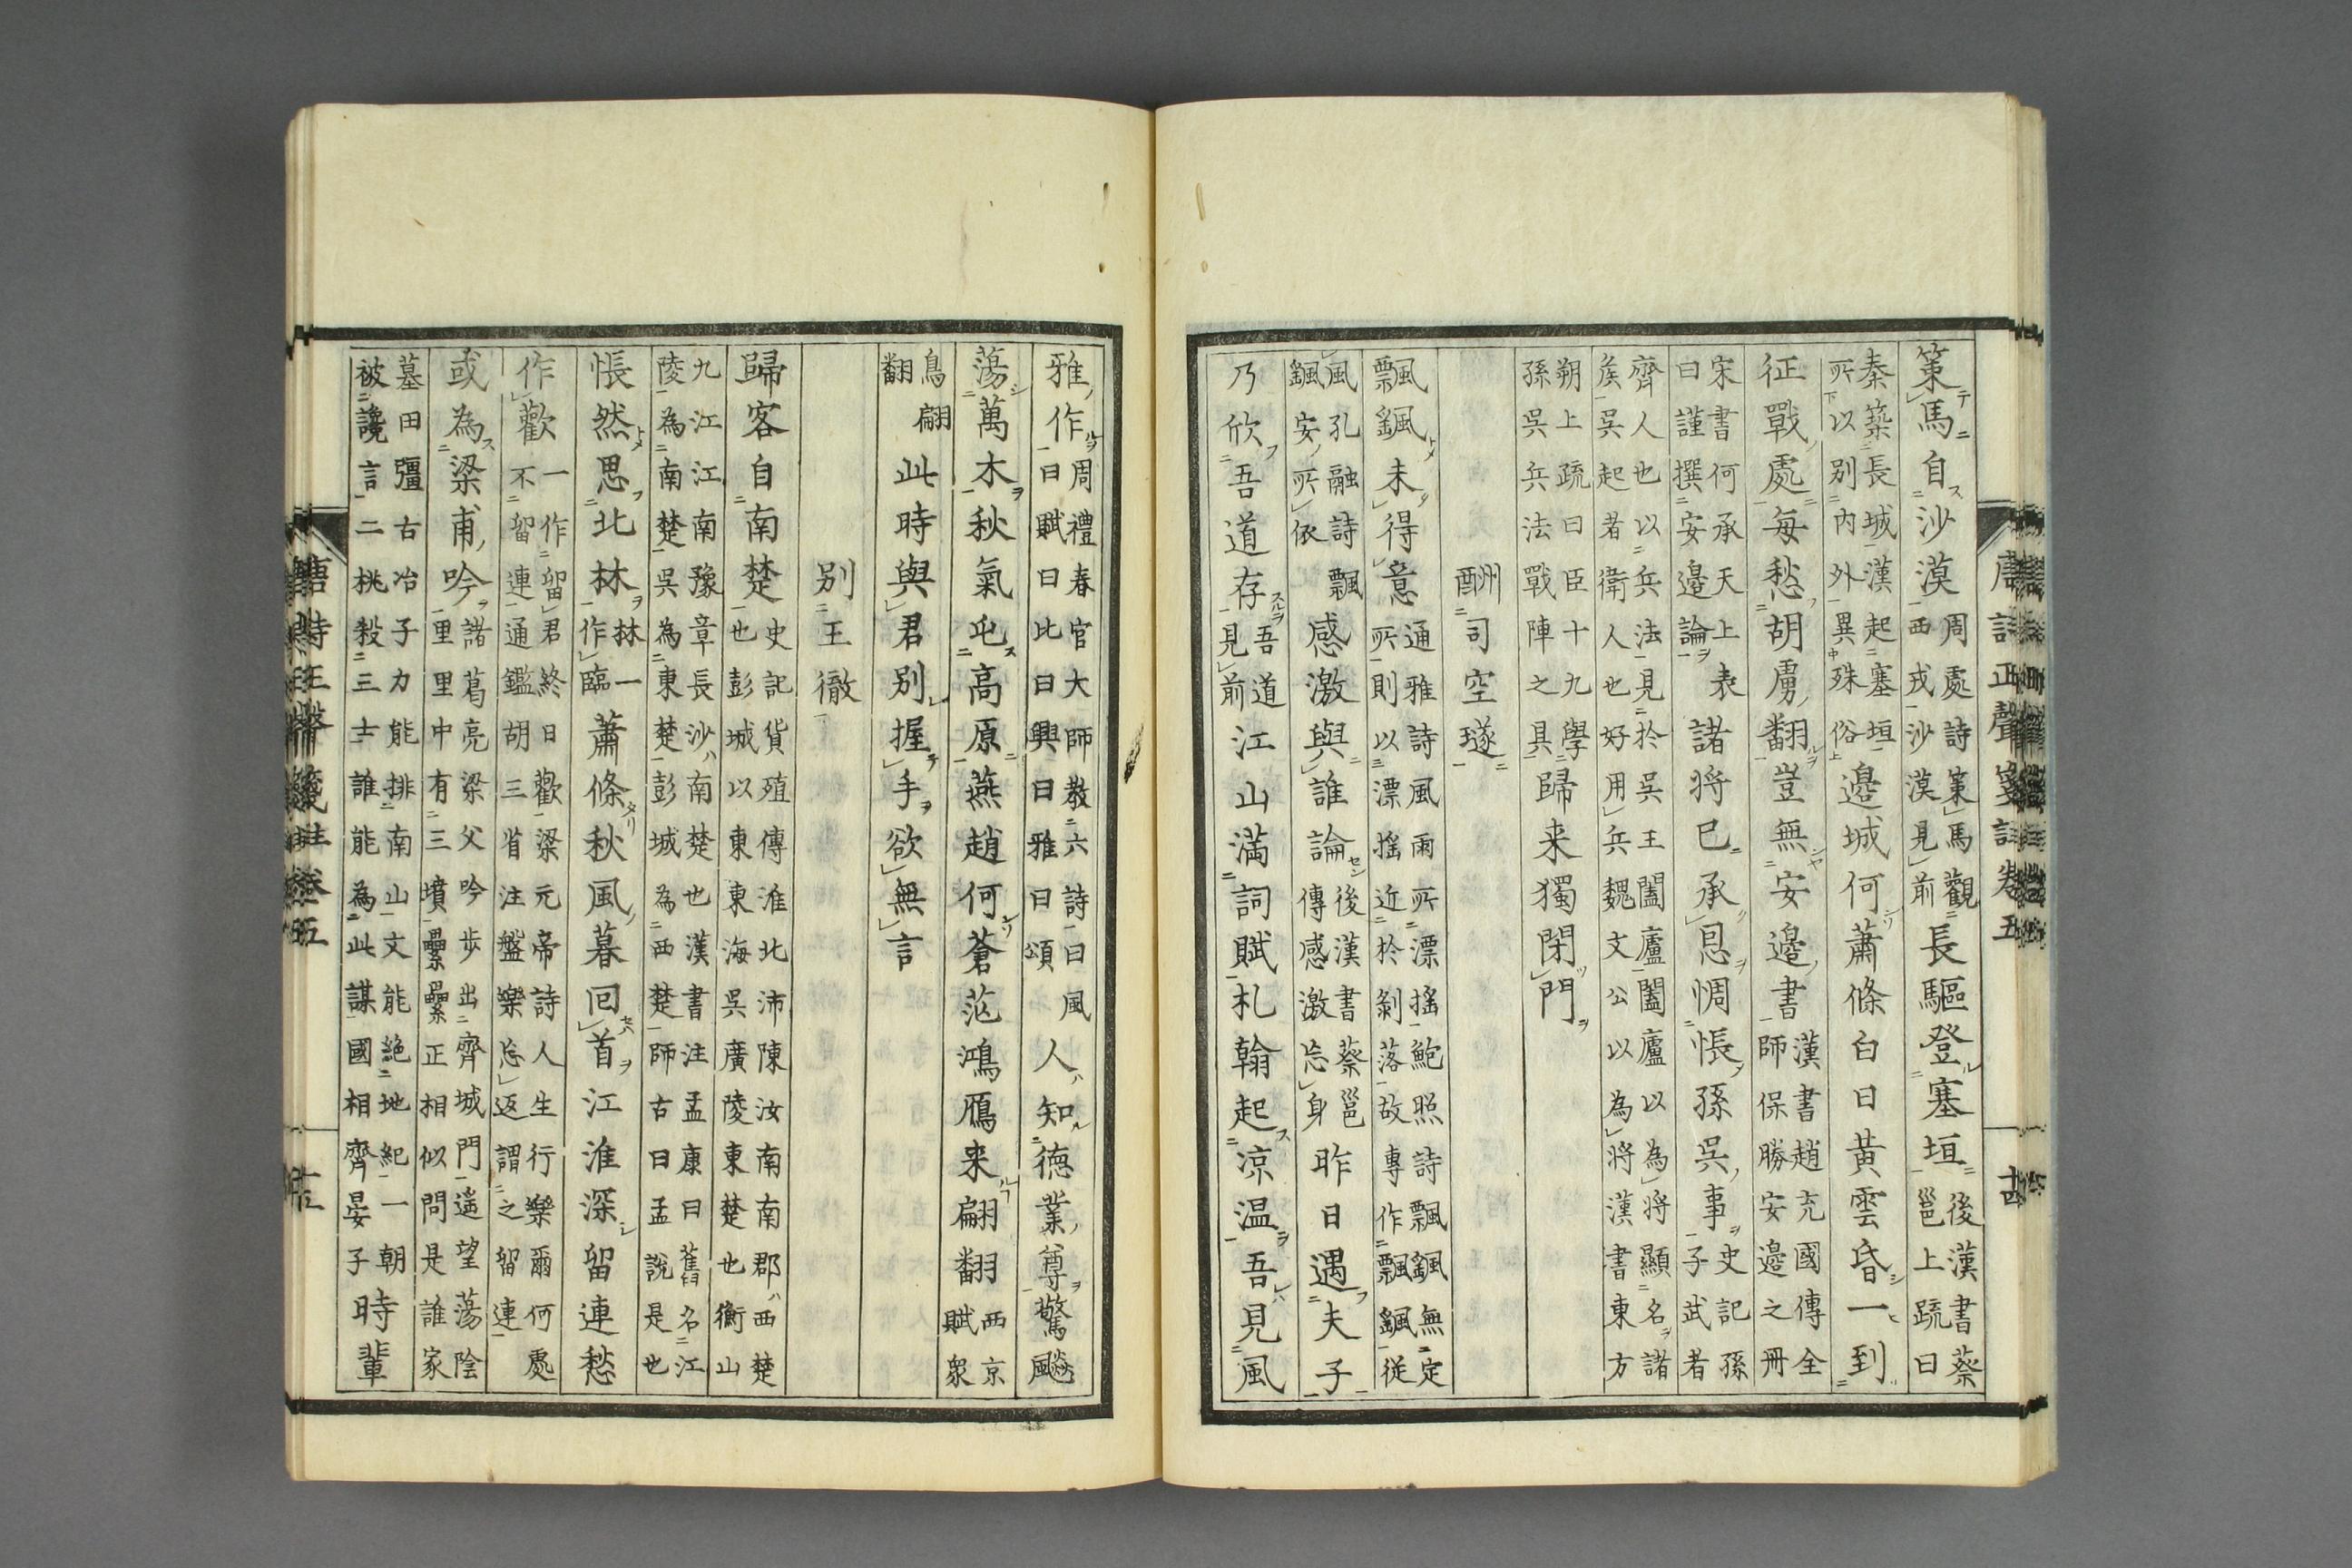 策馬自沙漠周處詩策馬觀西戎沙漠見前長驅登塞垣後漢書蔡邕上疏曰
秦築長城漢起塞垣所以别内外異殊俗邊城何蕭條白日黃雲昏一到
征戰處每愁胡虜翻豈無安邊書漢書趙充國傳全師保勝安邊之冊
宋書何承天上表曰謹撰安邊論諸将已承恩惆悵孫吳事史記孫子武者
齊人也以兵法見於吳王闔廬闔廬以為将顯名諸矦吳起者衛人也好用兵魏文公以為将漢書東方
朔上疏曰臣十九學孫吳兵法戰陣之具歸来獨閉門
酬司空璲
飄颻未得意通雅詩風雨所漂搖所則以漂搖近於剝落故專作飄颻鮑照詩飄颻無定從
風孔融詩飄颻安所依感激與誰論後漢書蔡邕傳感激忘身昨日遇夫子
乃欣吾道存吾道見前江山満詞賦札翰起凉温吾見風
雅作周禮春官大師教六詩曰風曰賦曰比曰興曰雅曰頌人知德業尊驚飈
蕩萬木秋氣屯高原燕趙何蒼茫鴻鴈来翩翻西京賦衆
鳥翩翻此時與君別握手欲無言
别王徹
歸客自南楚史記貨殖傳淮北沛陳汝南南郡西楚也彭城以東東海吳廣陵東楚也衡山
九江江南豫章長沙南楚也漢書注孟康曰舊名江陵為南楚吳為東楚彭城為西楚師古曰孟說是也
悵然思北林林一作臨蕭條秋風暮回首江淮深留連愁
作歡一作留君終日歡不留連通鑑胡三省注盤樂忘返謂之留連梁元帝詩人生行樂爾何處
或為梁甫吟諸葛亮梁父吟歩出齊城門遥望蕩陰里里中有三墳纍纍正相似問是誰家
墓田彊古冶子力能排南山文能絶地紀一朝被讒言二桃殺三士誰能為此謀國相齊晏子時輩
唐詩正聲箋註卷五
十四